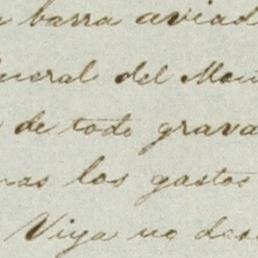 barra aviad
neral del Mon
de todo grava
nas los gastos
Viya no des